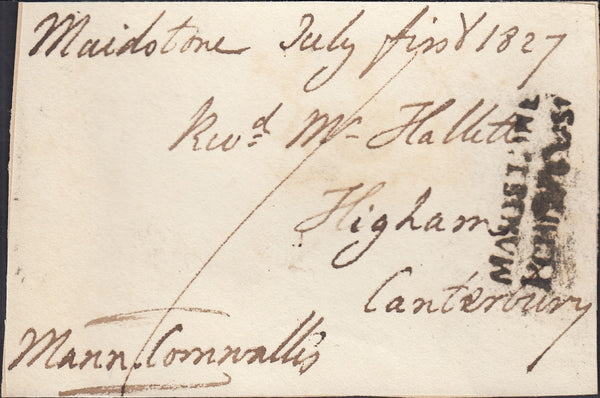 Maidstone July first 1827
Revd. Mr Hallett
Higham
Canterbury
Mann. Cornwallis